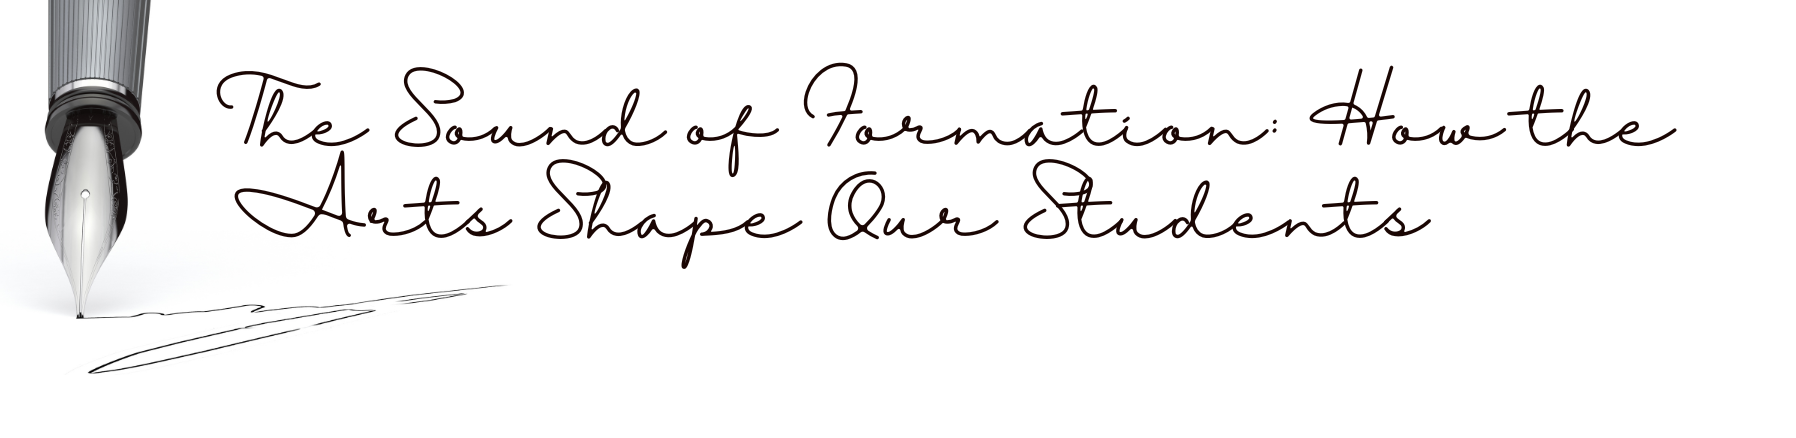 The Sound of Formation: How the
Arts Shape Our Students